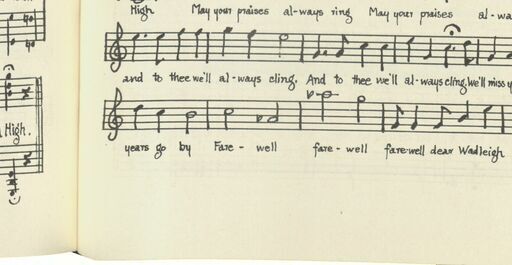 High May your praises al-ways ring May your praises al-wa
and to thee we'll al-ways cling. And to thee we'll al-ways cling, We'll miss y
High.
years go by Fare-well fare-well fare-well dear Wadleigh